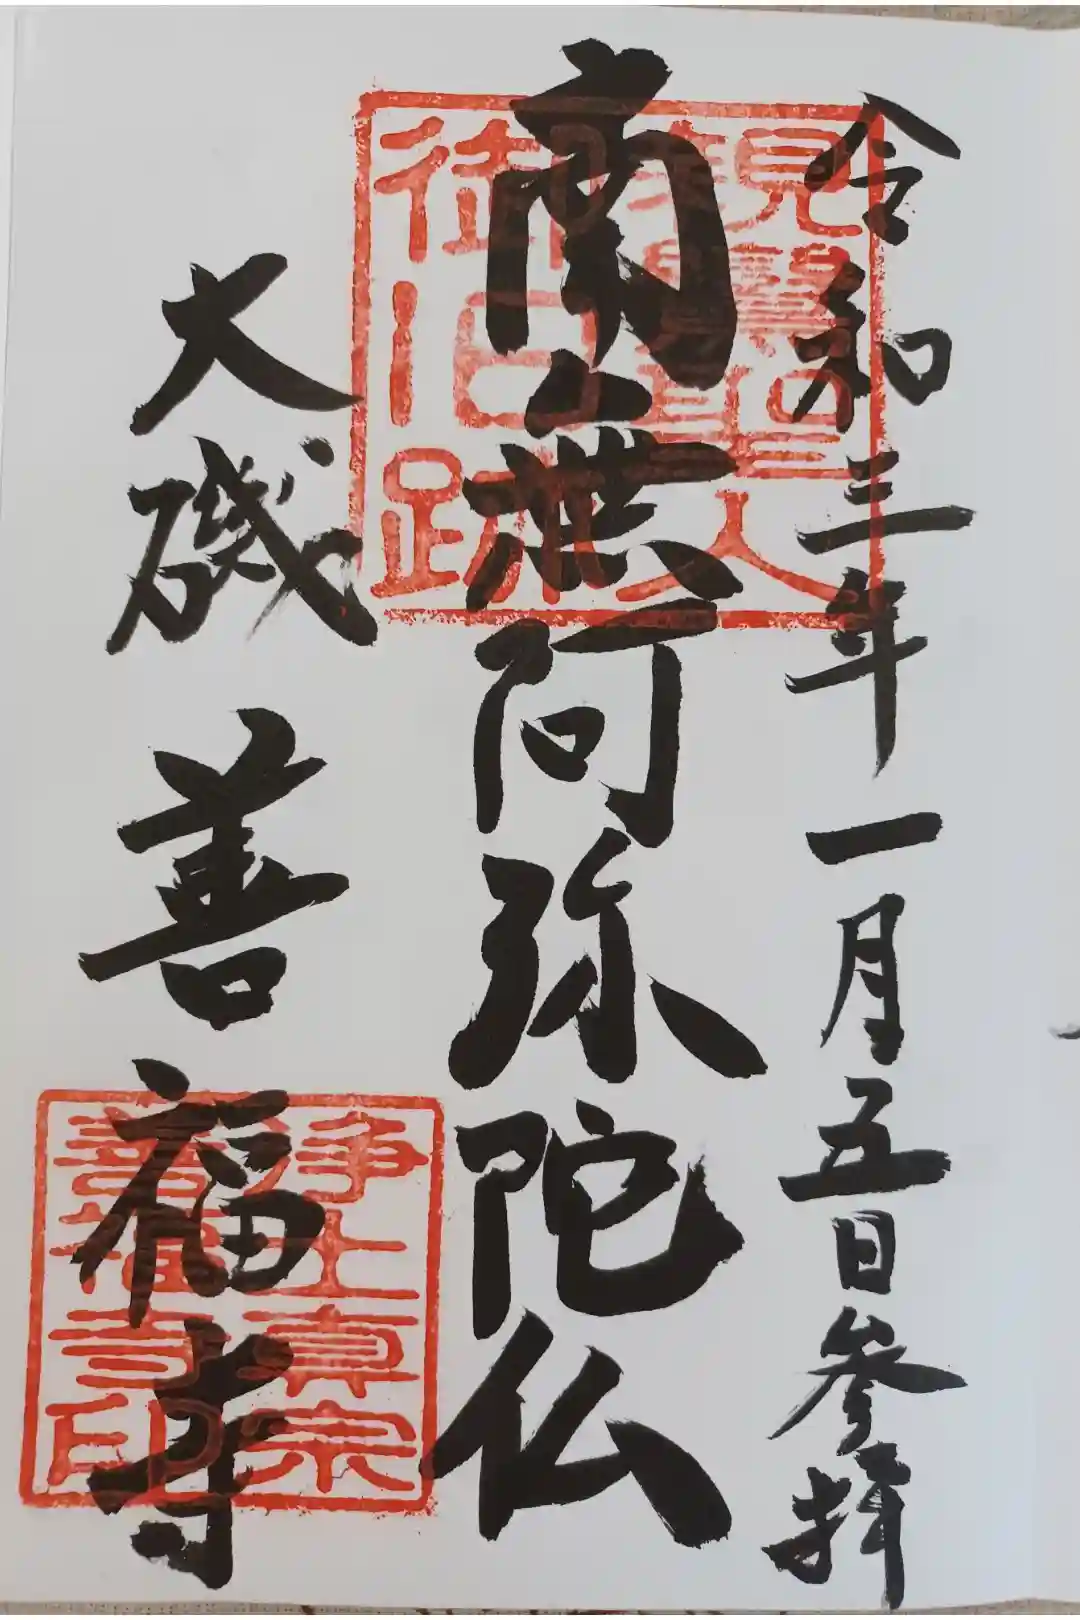 令和三年一月五日参拝
南無阿弥陀仏
大磯 善福寺
見真
聖人
御旧跡
浄土真宗
善福寺印